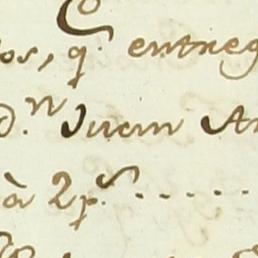 os, q.^e entreg
D.^n Juan An
à 2 p.^s .....